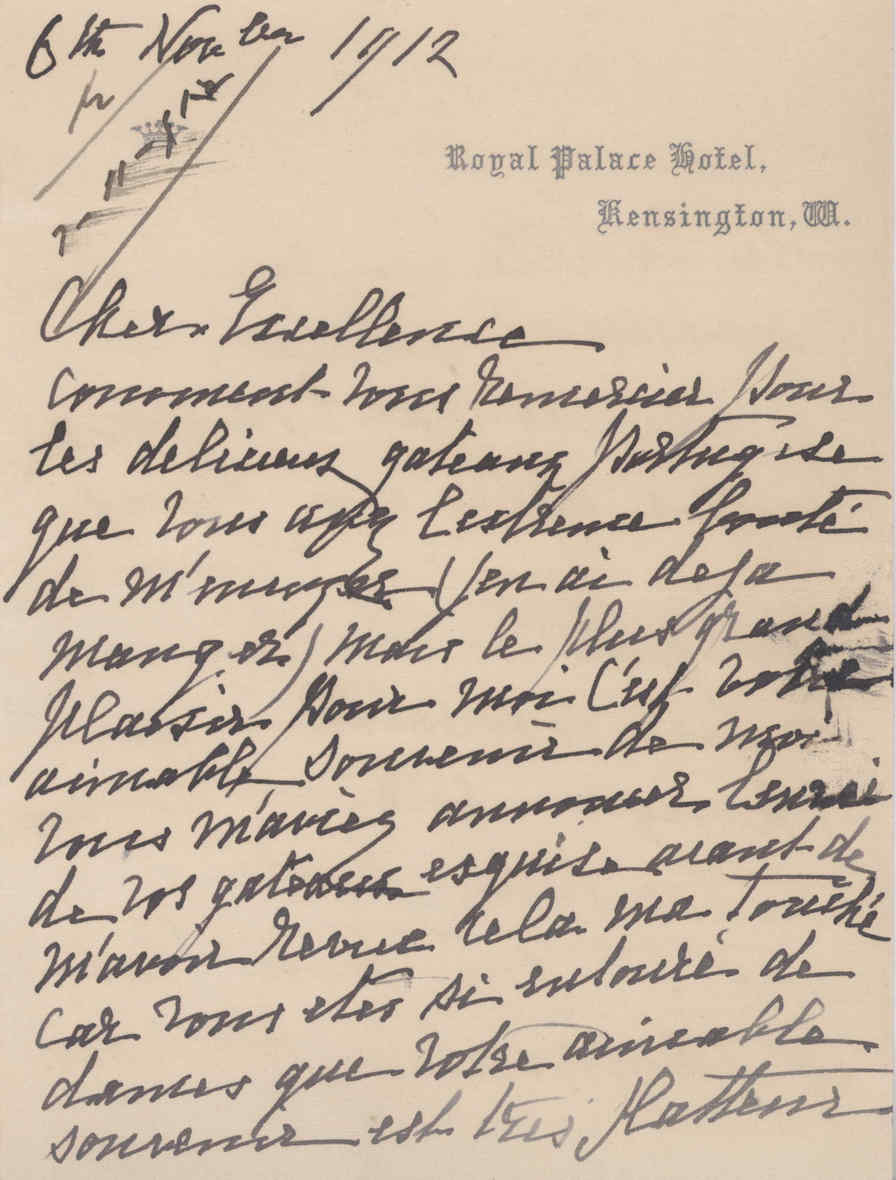 6th Novber 1912
Royal Palace Hotel,
Kensington, W.
Cher Excellence
comment vous remercier pour
les delicieus gateaux Portugise
que vous avez l'extreme bonté
de m'envoyer (j'en ai deja
manger) mais le plus grand
plaisir pour moi c'est votre
aimable souvenir de moi
vous m'aviez annoncer l'envoi
de vos gateaux esquise avant de
m'avoir revue cela ma touché
car vous etes si entouré de
dames que votre aimable
souvenir est trés flatteur